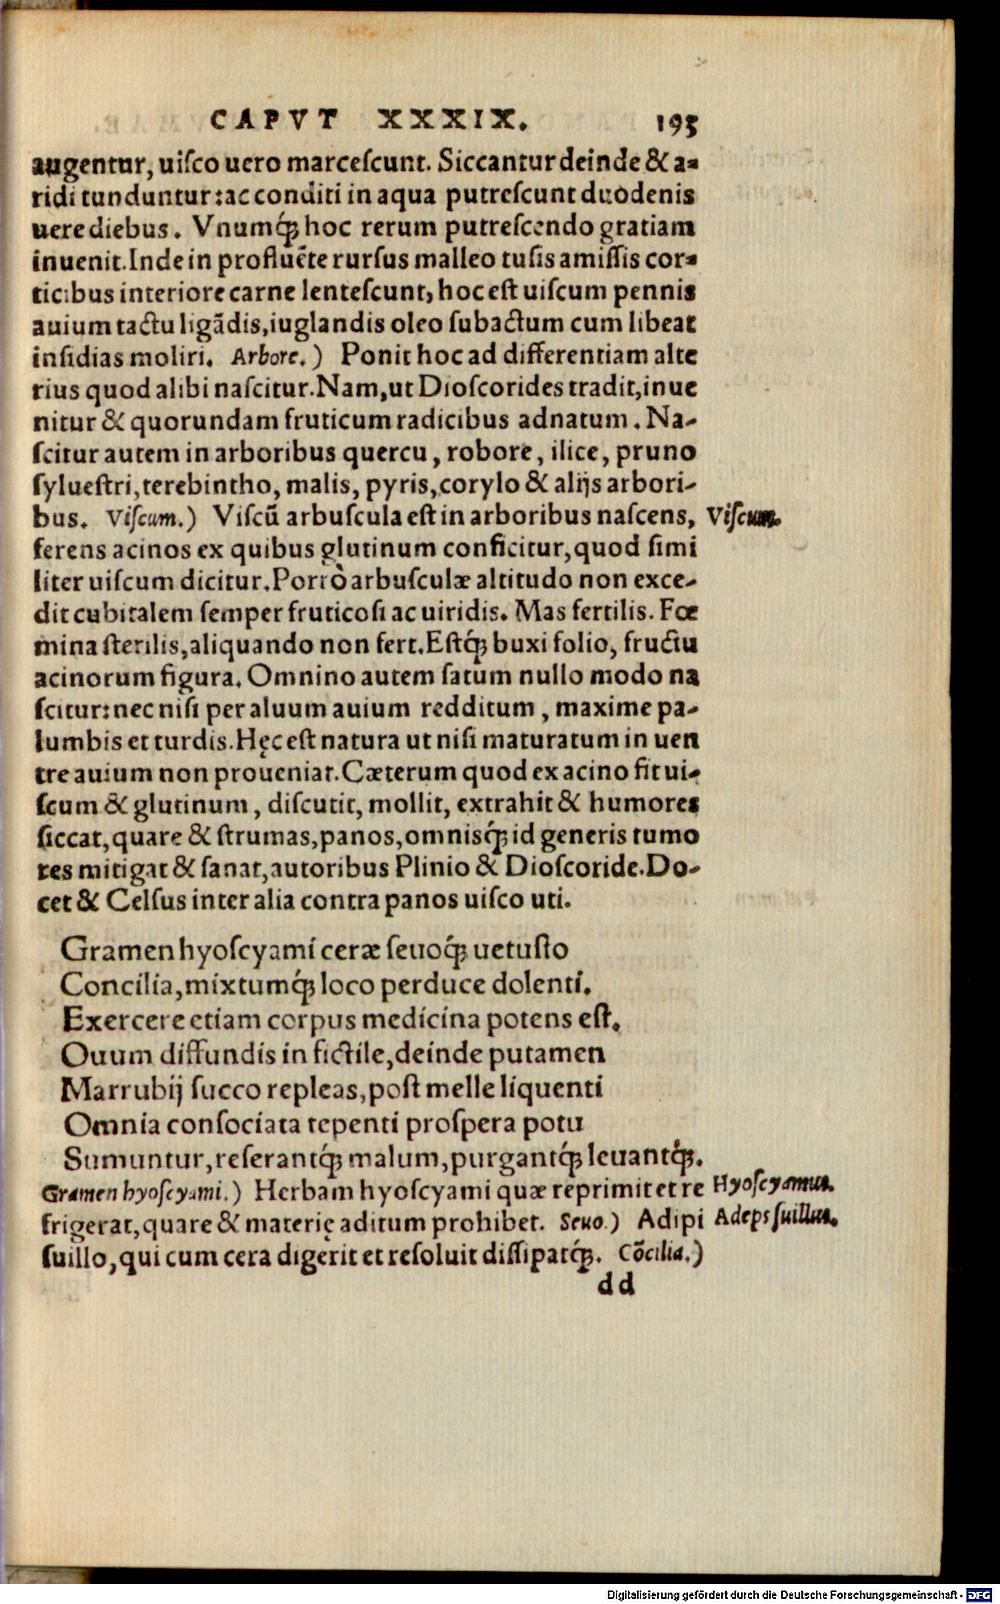 CAPVT XXXIX. 195
augentur, uiſco uero marceſcunt. Siccantur deinde & a-
ridi tunduntur: ac conditi in aqua putreſcunt duodenis
uere diebus. Vnumq́ꝫ hoc rerum putreſcendo gratiam
inuenit. Inde in profluẽte rurſus malleo tuſis amiſſis cor-
ticibus interiore carne lenteſcunt, hoc eſt uiſcum pennis
auium tactu ligãdis, iuglandis oleo ſubactum cum libeat
inſidias moliri. Arbore.) Ponit hoc ad differentiam alte
rius quod alibi naſcitur. Nam, ut Dioſcorides tradit, inue
nitur & quorundam fruticum radicibus adnatum. Na-
ſcitur autem in arboribus quercu, robore, ilice, pruno
ſylueſtri, terebintho, malis, pyris, corylo & alijs arbori-
bus. Viſcum.) Viſcũ arbuſcula eſt in arboribus naſcens, Viſcum.
ferens acinos ex quibus glutinum conficitur, quod ſimi
liter uiſcum dicitur. Porrò arbuſculæ altitudo non exce-
dit cubitalem ſemper fruticoſi ac uiridis. Mas fertilis. Fœ
mina ſterilis, aliquando non fert. Eſtq́ꝫ buxi folio, fructu
acinorum figura. Omnino autem ſatum nullo modo na
ſcitur: nec niſi per aluum auium redditum, maxime pa-
lumbis et turdis. Hęc eſt natura ut niſi maturatum in uen
tre auium non proueniat. Cæterum quod ex acino fit ui-
ſcum & glutinum, diſcutit, mollit, extrahit & humores
ſiccat, quare & ſtrumas, panos, omnisq́ꝫ id generis tumo
res mitigat & ſanat, autoribus Plinio & Dioſcoride. Do-
cet & Celſus inter alia contra panos uiſco uti.
Gramen hyoſcyami ceræ ſeuoq́ꝫ uetuſto
Concilia, mixtumq́ꝫ loco perduce dolenti.
Exercere etiam corpus medicina potens eſt.
Ouum diffundis in fictile, deinde putamen
Marrubij ſucco repleas, poſt melle liquenti
Omnia conſociata tepenti proſpera potu
Sumuntur, reſerantq́ꝫ malum, purgantq́ꝫ leuantq́ꝫ.
Gramen hyoſcyami.) Herbam hyoſcyami quæ reprimit et re Hyoſcyamus.
frigerat, quare & materię aditum prohibet. Seuo.) Adipi Adeps ſuillus.
ſuillo, qui cum cera digerit et reſoluit diſſipatq́ꝫ. Cõcilia.)
dd
Digitalisierung gefördert durch die Deutsche Forschungsgemeinschaft - DFG